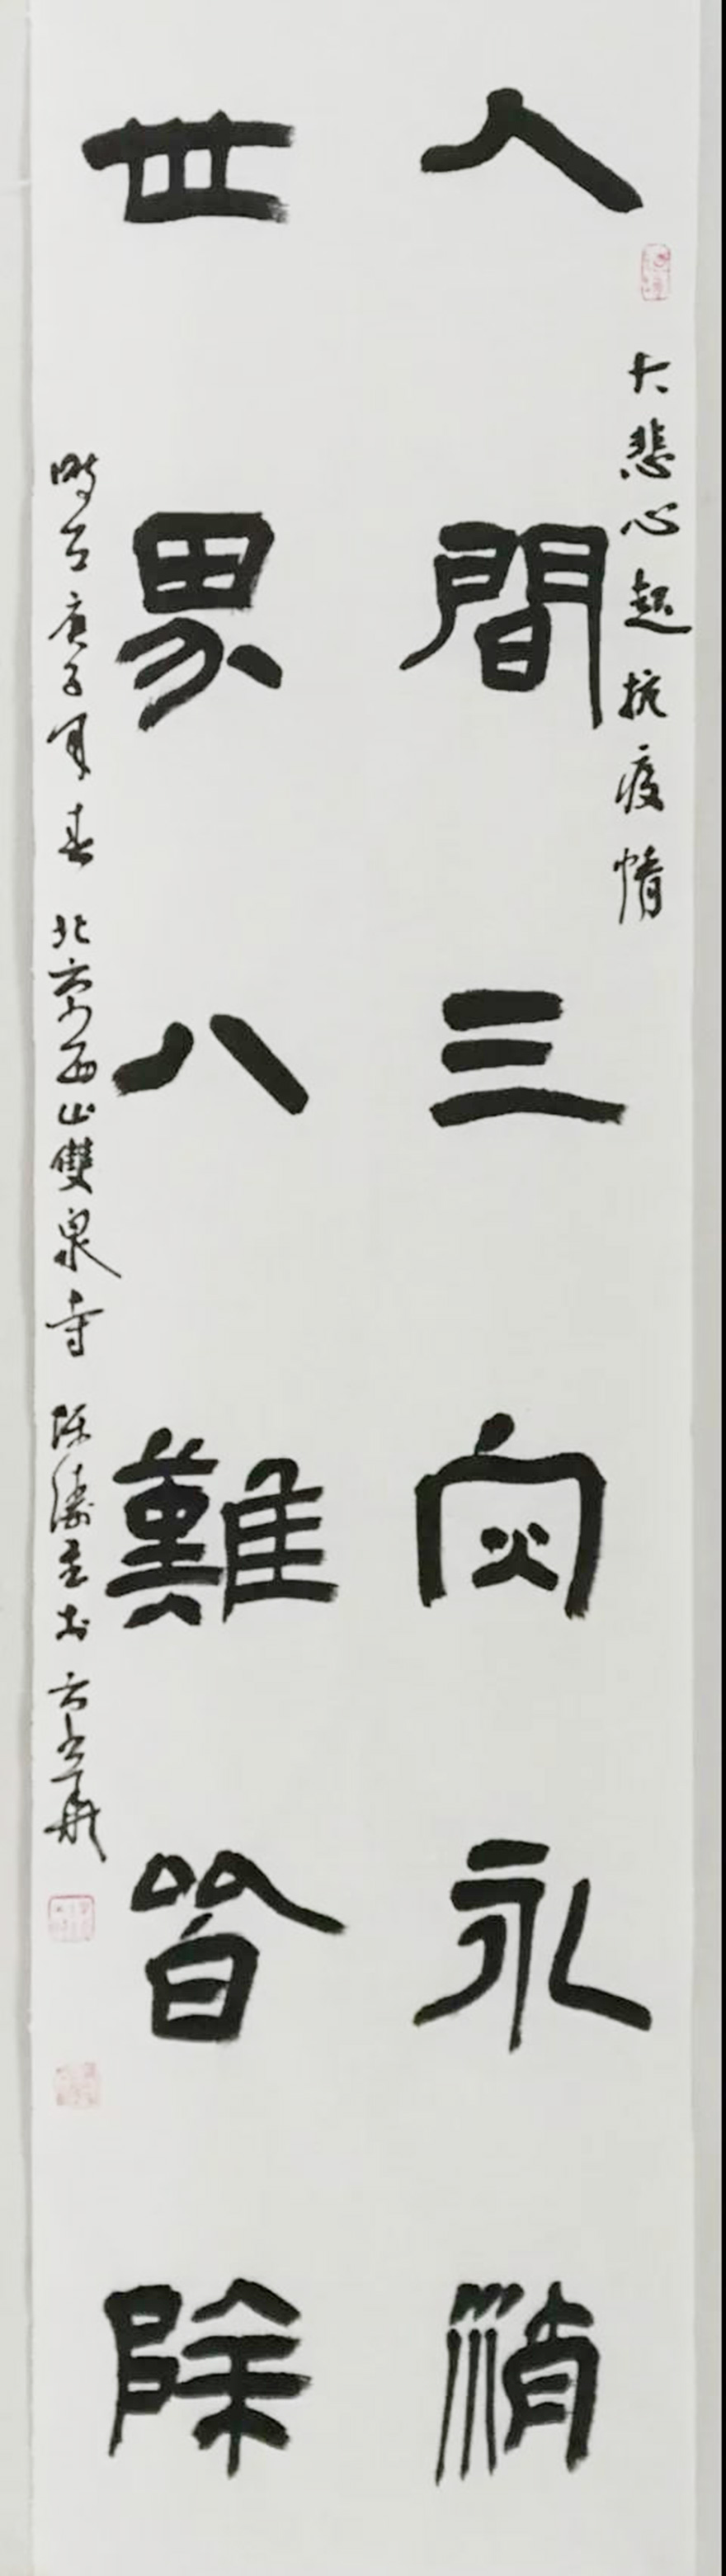 大悲心起抗疫情
人間三灾永消
世界八難皆除
時在庚子春 北京西山雙泉寺